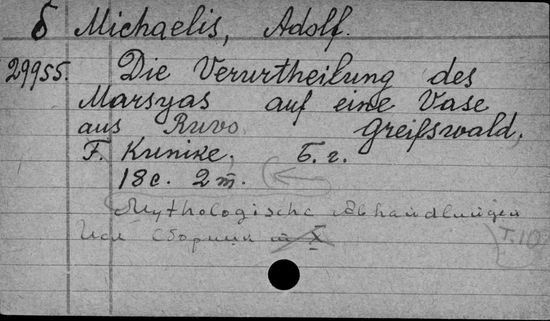 б Michaelis, Adolf.
29955. Die Verurtheilung des
Marsyas auf eine Vase
aus Ruvo. Greifswald,
F. Kunike, Б. г.
18 с. 2 m.
Mythologische Abhandlungen
сборник X T. 10